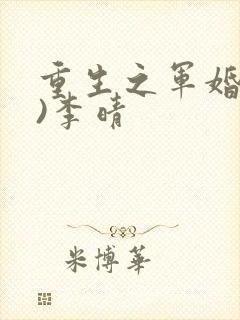 重生之军婚
)李晴
米博华